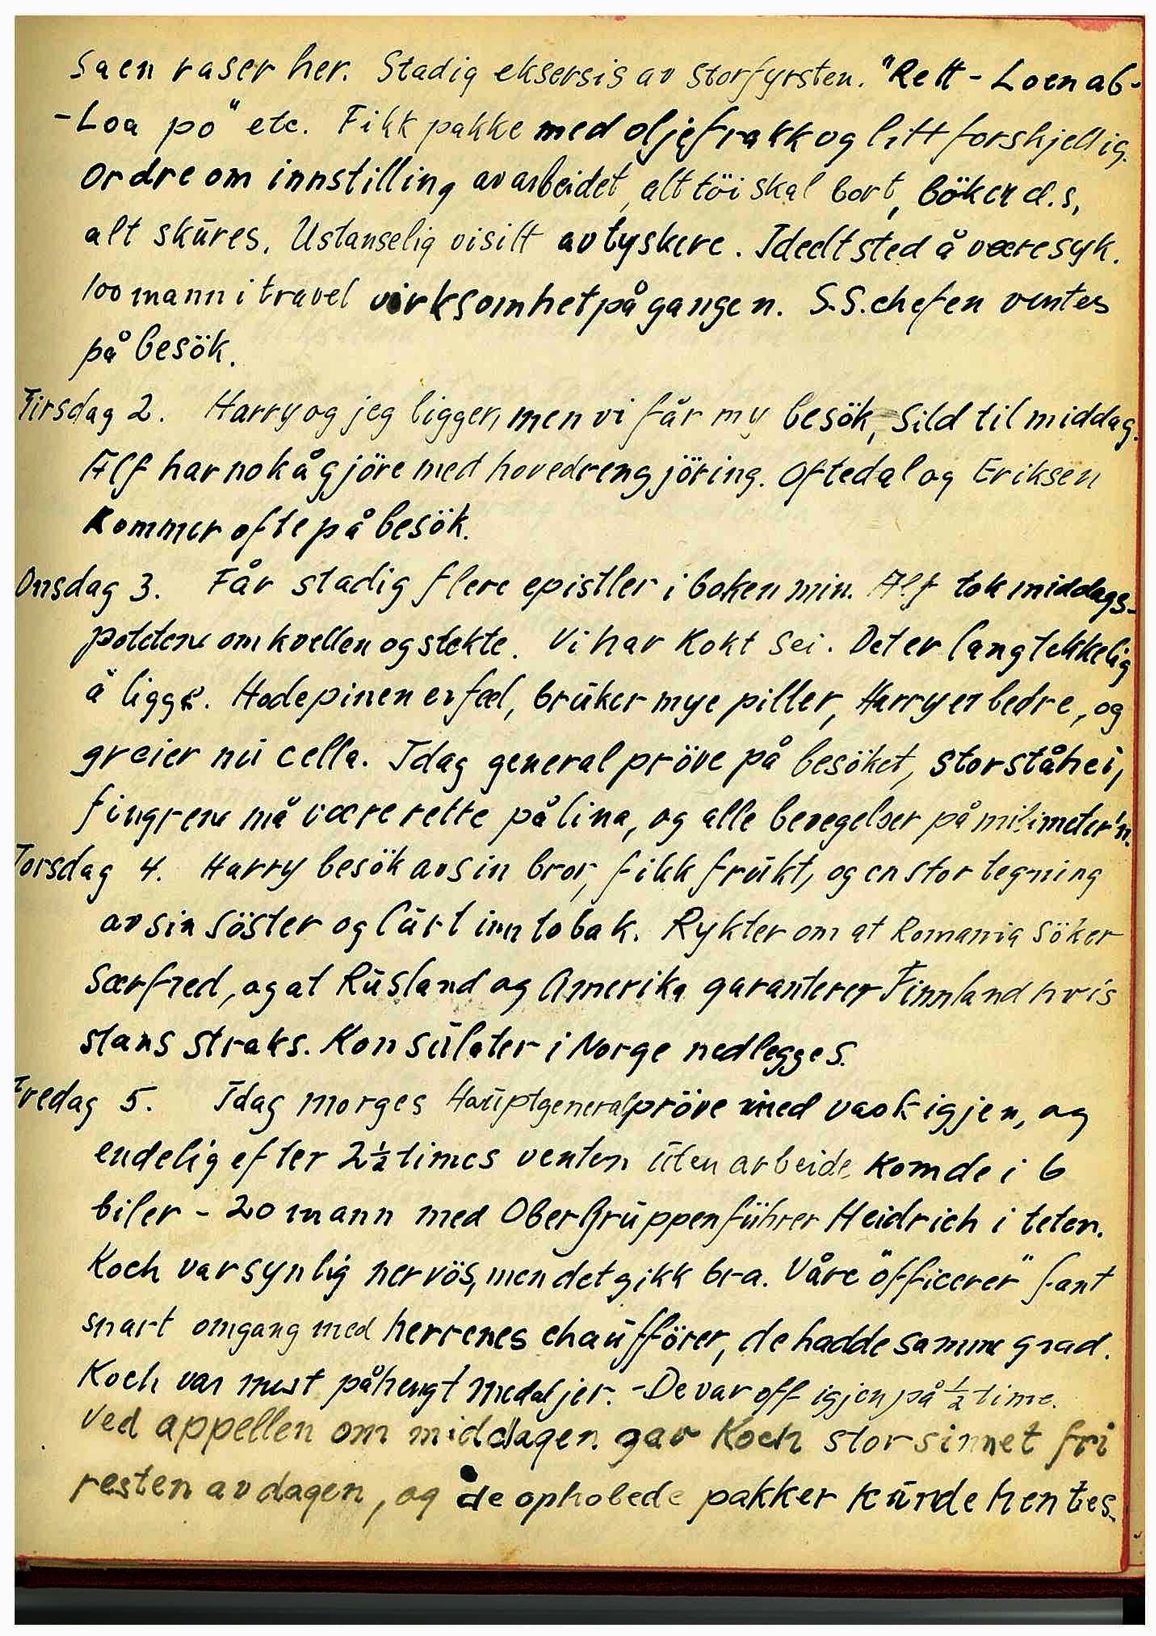 Saen raser her. Stadig eksersis av storfyrsten. "Rett - Loen ab -
- Loa po" etc. Fikk pakke med oljefrakk og litt forskjellig.
Ordre om innstilling av arbeidet, alt töi skal bort, böker d.s,
alt skures. Ustanselig visitt av tyskere. Ideelt sted å være syk.
100 mann i travel virksomhet på gangen. S.S. chefen ventes
på besök.
Tirsdag 2. Harry og jeg ligger, men vi får my besök, Sild til middag.
Alf har nok å gjöre med hovedrengjöring. Oftedal og Eriksen
kommer ofte på besök.
Onsdag 3. Får stadig flere epistler i boken min. Alf tok middags-
potetene om kvellen og stekte. Vi har kokt Sei. Det er langtekkelig
å ligge. Hodepinen er fæl, bruker mye piller, Harry er bedre, og
greier nu cella. Idag general pröve på besöket, storståhei,
fingrene må være rette på lina, og alle bevegelser på milimeter'n.
Torsdag 4. Harry besök av sin bror, fikk frukt, og en stor tegning
av sin söster og lurt inn tobak. Rykter om at Romania söker
Særfred, og at Rusland og Amerika garanterer Finnland hvis
stans straks. Konsulater i Norge nedlegges.
Fredag 5. Idag morges Hauptgeneralpröve med vask igjen, og
endelig efter 2½ times venten uten arbeide kom de i 6
biler - 20 mann med OberGruppenführer Heidrich i teten.
Koch var synlig nervös, men det gikk bra. Våre "officerer" fant
snart omgang med herrenes chaufförer, de hadde samme grad.
Koch var mest påhengt medaljer. - De var off igjen på ½ time.
Ved appellen om middagen gav Koch storsinnet fri
resten av dagen, og de opholede pakker kunde hentes.